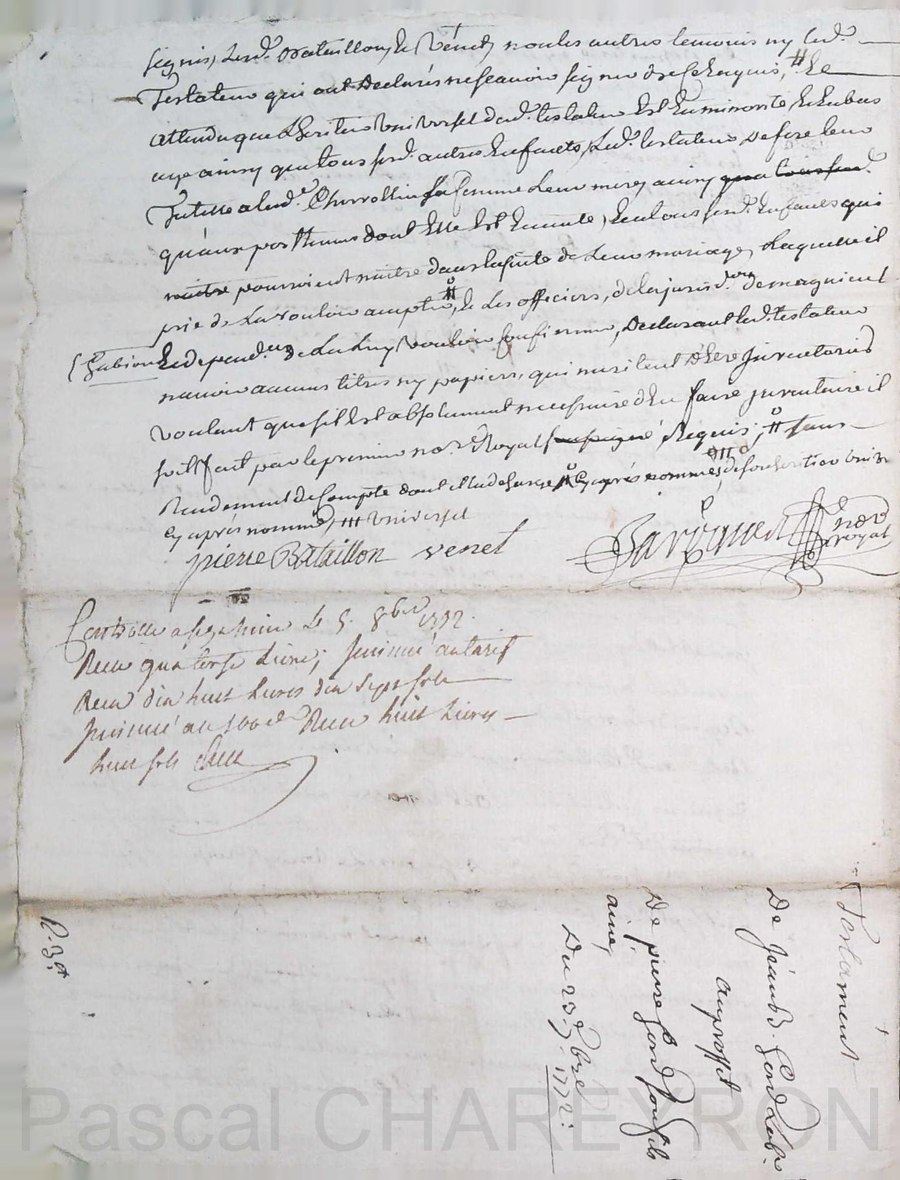 signés, Lesd. Bataillon, & Vénet, non les autres temoins ny Led.
Testateur qui ont Declarés ne scavoir signer de ce Requis, # Et
attendu que L'heritier Universel dud. testateur Est En minorité, & En bas
aye ainsy que tous sesd. autres Enfants, Led. testateur Defere leur
Tutelle a lad. Cherrollin sa femme Leur mere, ainsy que tous sesd.
qu'aux posthumes dont Elle Est Enceinte, & a tous sesd. Enfants qui
naitre pourroient naitre dans la suite de Leur mariage, Laquelle il
prie de La vouloir accepter, & Les officiers, de la jurisd.
( Gabion & dependces de La Luy vouloir confirmer, Declarant Led. testateur
n'avoir aucuns titres ny papiers, qui meritent d'être Inventoriés
voulant que s'il Est absolument necessaire d'En faire inventaire il
soit fait par le premier no.re Royal sur ce Requis; # sans
Rendement de Compte dont il la decharge # cy après nommés de son heritier univ
cy après nommé, III universel
pierre Bataillon venet
no.re royal
Controllé a le 5. 8bre 1772.
Recu quatorse Livres; Insinué au tarif
Recu dix huit Livres dix sept sols
Insinué au 100e Recu huit Livres
huit sols
R. 3
Testament
De Jean B. Gord Lab.r
au proffit
De pierre Gord son fils
ainé,
Du 23. 7bre 1772.
Pascal CHAREYRON